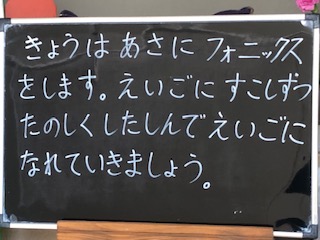 きょうは あさに フォニックス
をします。えいごに すこしずつ
たのしく したしんで えいごに
なれていきましょう。